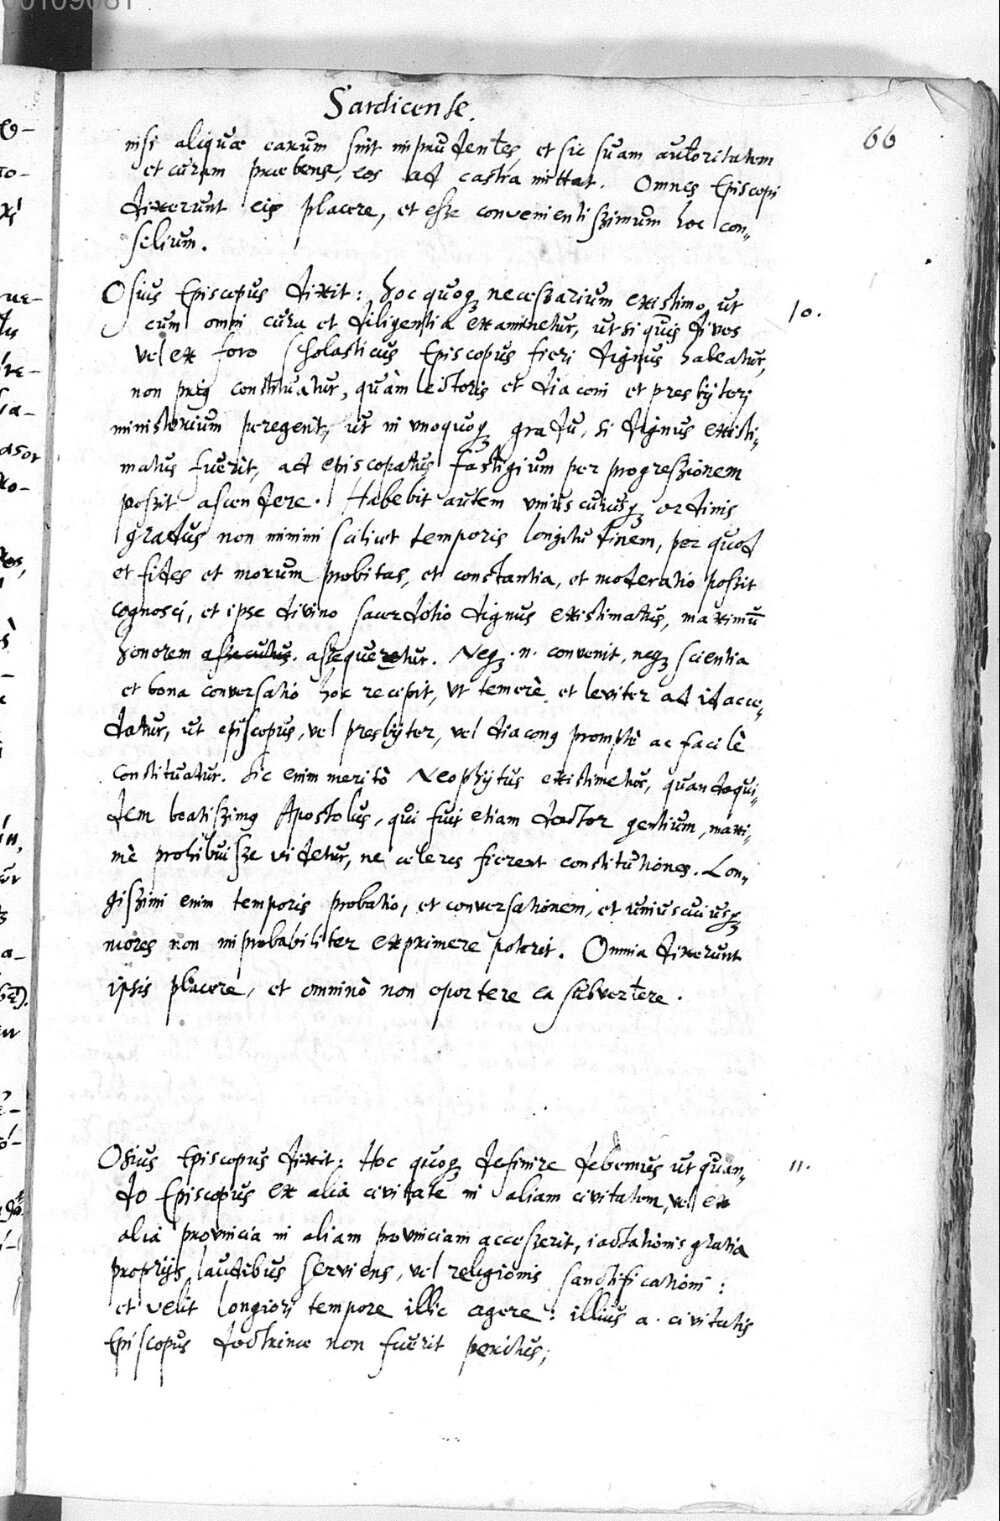 00109081
Sardicense.
66
nisi aliquæ earum sint imprudentes, et sic suam autoritatem
et curam præbens, eos ad castra mittat. Omnes Episcopi
dixerunt eis placere, et esse convenientissimum hoc con,,
silium.
Osius Episcopus dixit: hoc quoq, necessarium existimo, ut
10.
cum omni cura et diligentiâ examinetur, ut si quis dives
vel ex foro scholasticus Episcopus fieri dignus habeatur,
non prius constituatur, quàm lectoris et diaconi et presbyteri
ministerium peregerit, ut in unoquoq, gradu, si dignus existi,,
matus fuerit, ad episcopatus fastigium per progressionem
possit ascendere. Habebit autem uniuscuiusq, ordinis
gradus non minimi scilicet temporis longitudinem, per quod
et fides et morum probitas, et constantia, et moderatio possit
cognosci, et ipse divino sacerdotio dignus existimatus, maximū
honorem assecutus. assequeretur. Neq, .n. convenit, neq, scientia
et bona conversatio hoc recipit, ut temerè et leviter ad id acce,,
datur, ut episcopus, vel presbyter, vel diaconus promptè ac facilè
constituatur. Sic enim meritò Neophytus existimetur, quandoqui,,
dem beatissimus Apostolus, qui fuit etiam doctor gentium, maxi,,
mè prohibuisse videtur, ne celeres fierent constitutiones. Lon,,
gissimi enim temporis probatio, et conversationem, et uniuscuiusq,
mores non improbabiliter exprimere poterit. Omnia dixerunt
ipsis placere, et omninò non oportere ea subvertere.
Osius Episcopus dixit: Hoc quoq, definire debemus ut quan,,
11.
do Episcopus ex aliâ civitate in aliam civitatem, vel ex
aliâ provincia in aliam provinciam accesserit, iactationis gratia
proprijs laudibus serviens, vel religionis sanctificationi:
et velit longiori tempore illic agere: illius a. civitatis
Episcopus doctrinæ non fuerit peritus;